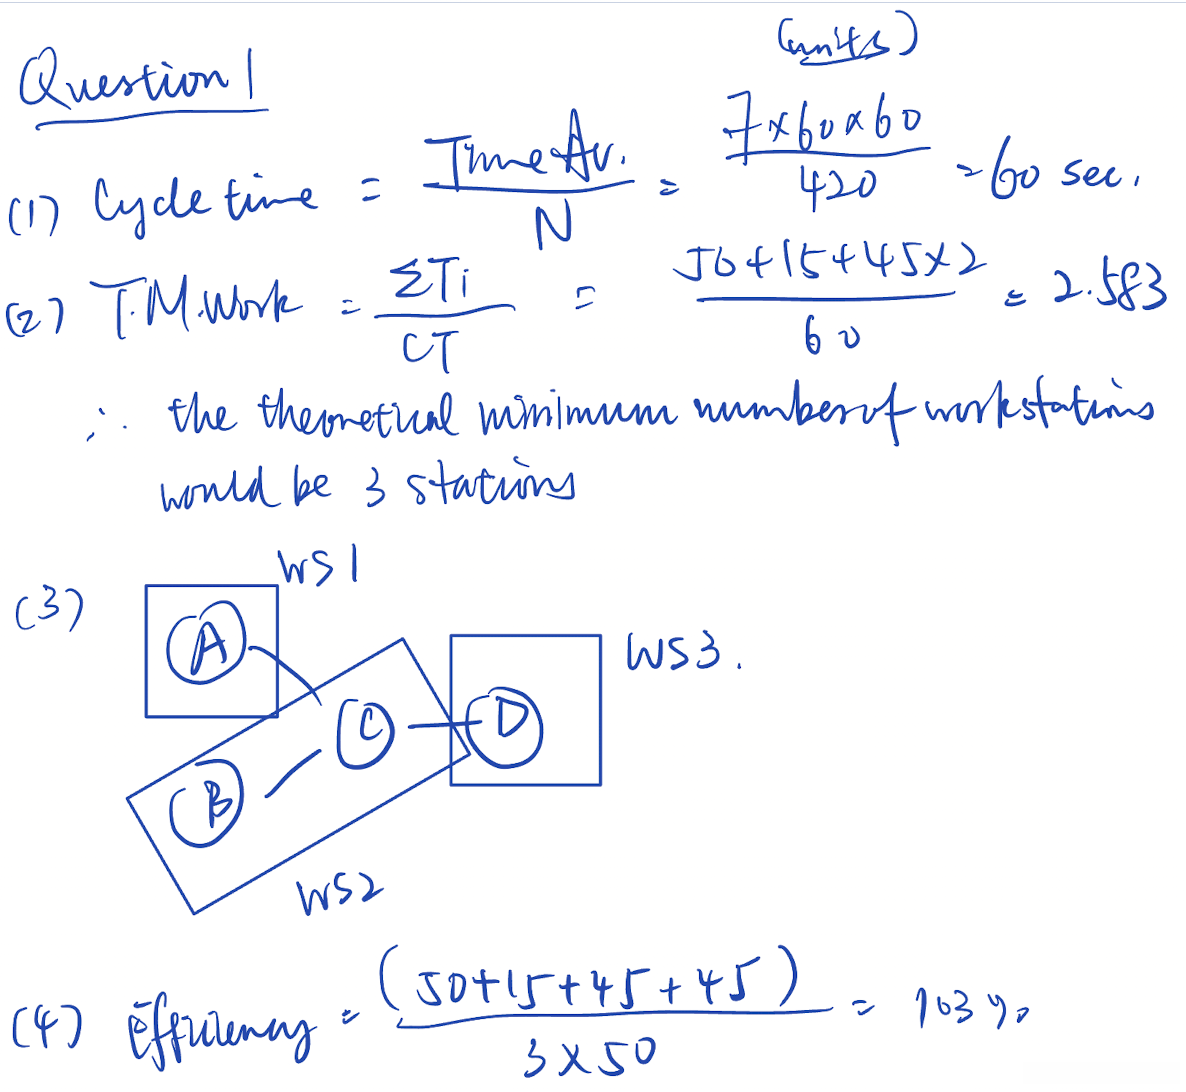 Question 1
(units)
(1) Cycle time = Time Av. / N = 7×60×60 / 420 = 60 sec.
(2) T.M.Work = ΣTi / CT = 50+15+45×2 / 60 = 2.583
∴ the theoretical minimum number of workstations
would be 3 stations
(3)
WS1
A
WS3.
C
D
B
WS2
(4) Efficiency = (50+15+45+45) / 3×50 = 103%